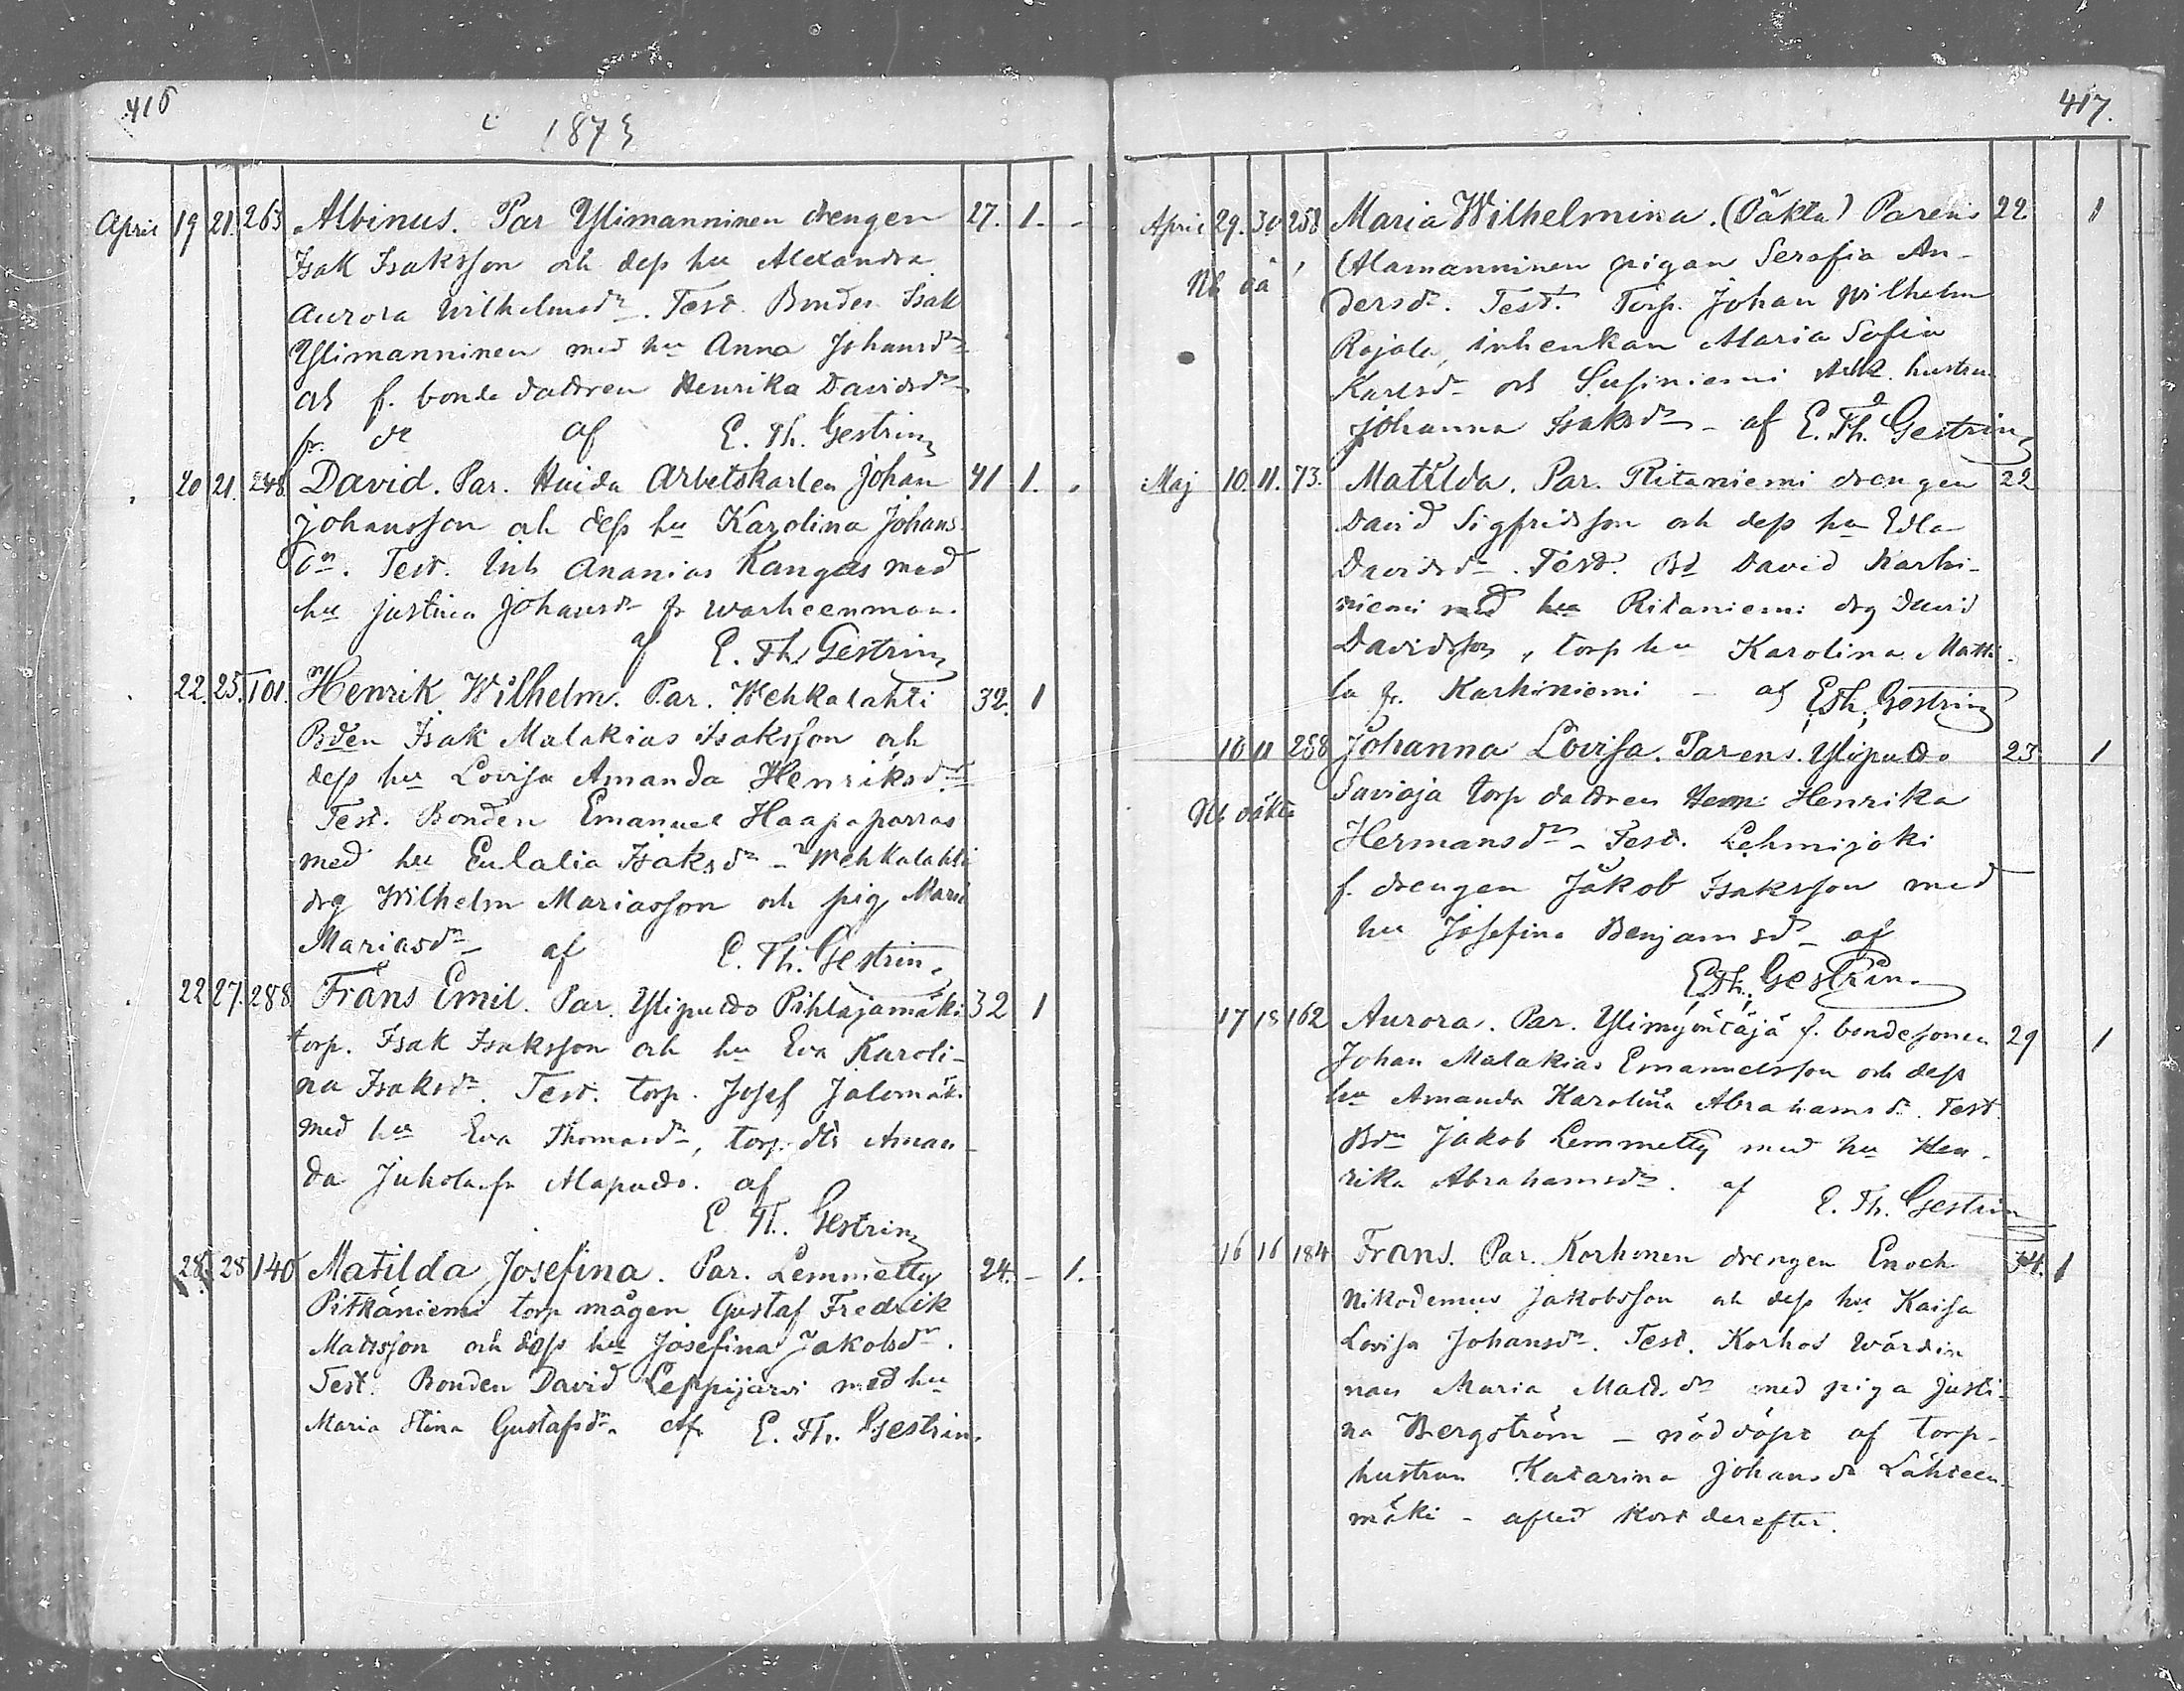 416
1873
April 19 21. 263 Albinus. Par Ylimanninen drengen 27. 1.
Isak Isaksson och dess hu Alexandra
Aurora Wilhelmsdr. Test. Bonden Isak
Ylimanninen med hu Anna Johansdr
och f. bonde dottren Henrika Davidsdr
fr. dr af E. Th. Gestrin
20 21. 248 David. Par. Huida Arbetskarlen Johan 41 1.
Johansson och dess hu Karolina Johans
dn. Test. Inh Ananias Kangas med
hu Justina Johansdr fr warheenmaa.
af E. Th. Gestrin
22. 25. 101. Henrik Wilhelm. Par. Wehkalahti 32. 1
Bden Isak Malakias Isaksson och
dess hu Lovisa Amanda Henriksdr
Test. Bonden Emanuel Haapaporras
med hu Eulalia Isaksdr - Wehkalahti
drg Wilhelm Mariasson och pig Maria
Mariasdr af E. Th. Gestrin
22 27. 288 Frans Emil. Par. Ylipuldo Pihlajamäki 32 1
torp. Isak Isaksson och hu Eva Karoli-
na Isaksdr. Test. torp. Josef Jalomäki
med hu Eva Thomasdr, torp. dtr Aman-
da Juhola fr Alapuldo. af
E. Th. Gestrin
28. 28 140 Matilda Josefina. Par. Lemmetty 24. - 1.
Pitkäniemi torp mågen Gustaf Fredrik
Mattsson och dess hu Josefina Jakobsdr.
Test. Bonden David Leppijärvi med hu
Maria Stina Gustafsdr. Af E. Th. Gestrin.
417.
April 29. 30 258 Maria Wilhelmina. (Oäkta) Parens 22 1
Nb oä
Alamanninen pigan Serafia An-
dersdr. Test. Torp. Johan Wilhelm
Rajala, inhenkan Maria Sofia
Karlsdr och Susiniemi Arb. hustru
Johanna Isaksdr - af E. Th. Gestrin
Maj 10. 11. 73. Matilda. Par. Ritaniemi drengen 22
David Sigfridsson och dess hu Edla
Davidsdr. Test. Bd David Karhi-
niemi med hu Ritaniemi drg David
Davidsson, torp hu Karolina Matti-
la fr. Karhiniemi - af E.Th. Gestrin
10 11 258 Johanna Lovisa. Parens. Ylipuldo 23 1
Nb oäkta
Savioja torp dottren Henrika
Hermansdr - Test. Lehmijoki
f. drengen Jakob Isaksson med
hu Josefina Benjamsdr - af
E.Th. Gestrin.
17 18 162 Aurora. Par. Ylimyöntäjä f. bondesonen 29 1
Johan Malakias Emanuelsson och dess
hu Amanda Karolina Abrahamsdr. Test.
Bdn Jakob Lemmetty med hu Hen-
rika Abrahamsdr. af E. Th. Gestrin
16 16 184 Frans. Par. Korhonen drengen Enoch 34. 1
Nikodemus Jakobsson och dess hu Kaisa
Lovisa Johansdr. Test. Korhos Wärdin
nan Maria Matts dr med piga Justi-
na Bergström - nöddöpt af torp-
hustrun Katarina Johansdr Lähteen-
mäki - afled kort derefter.